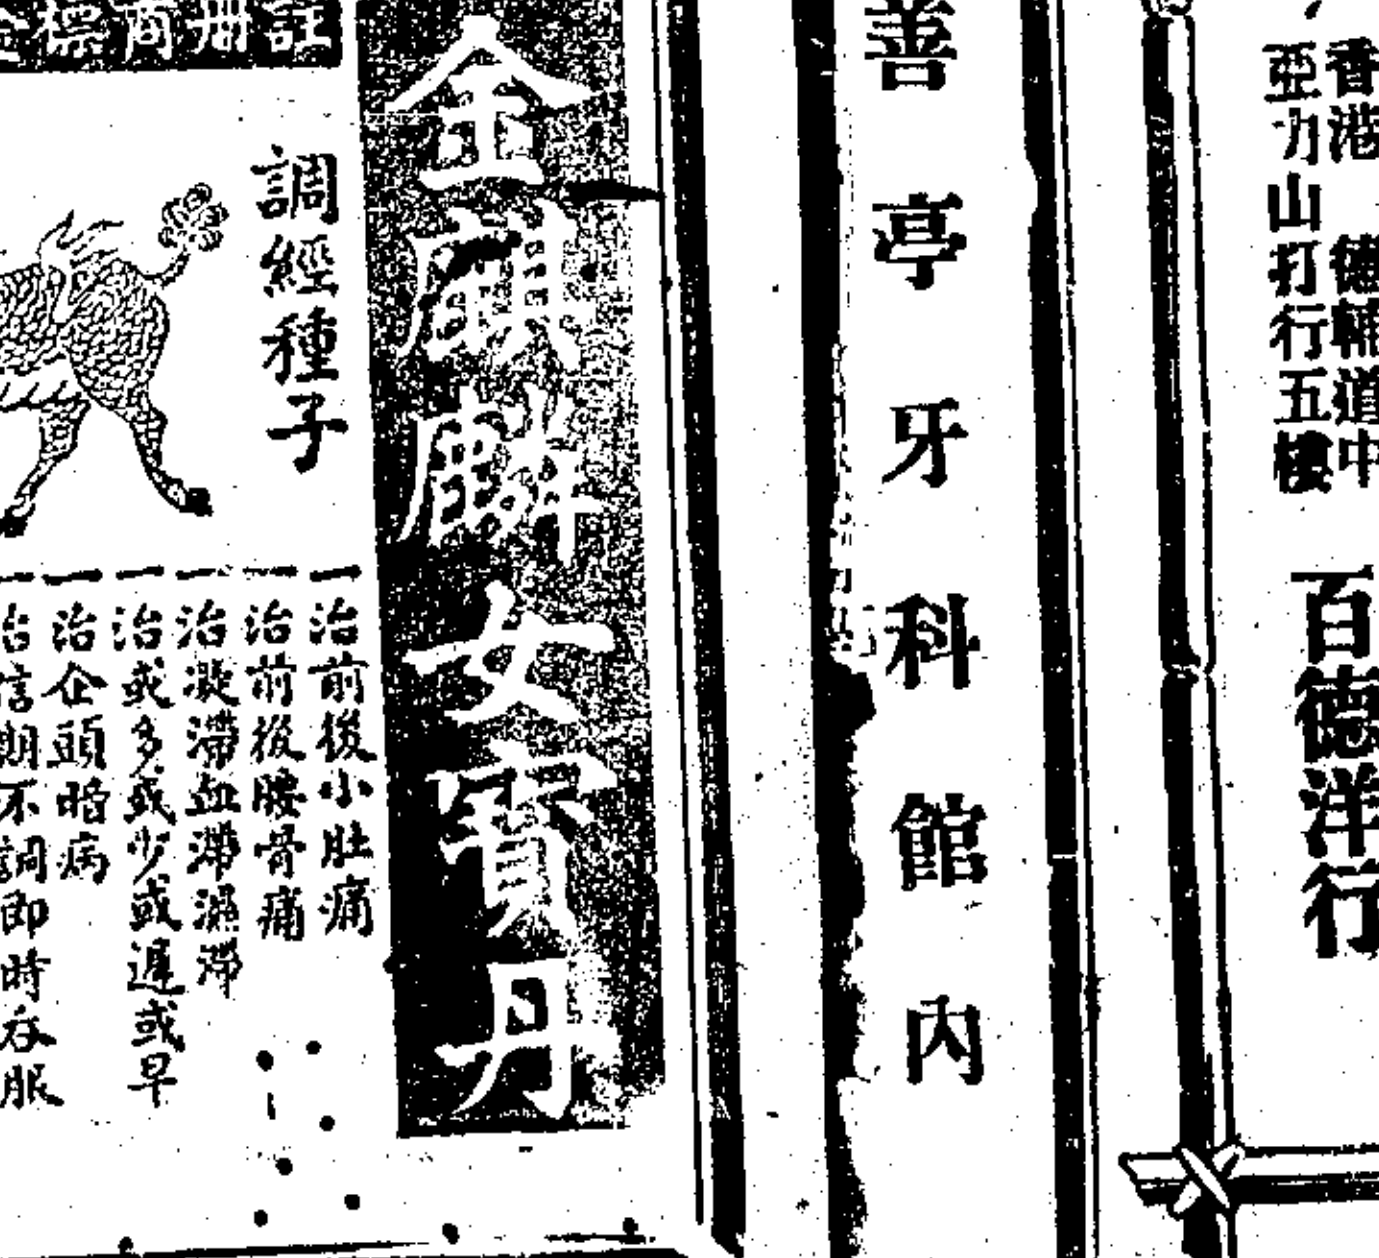 香港 德輔道中
亞力山打行五樓
百德洋行
善亭牙科館內
金麒麟女寶丹
註冊商標
調經種子
一治前後小肚痛
一治前後腰骨痛
一治凝滯血滯濕滯
一治或多或少或遲或早
一治企頭暗病
一治信期不調即時吞服